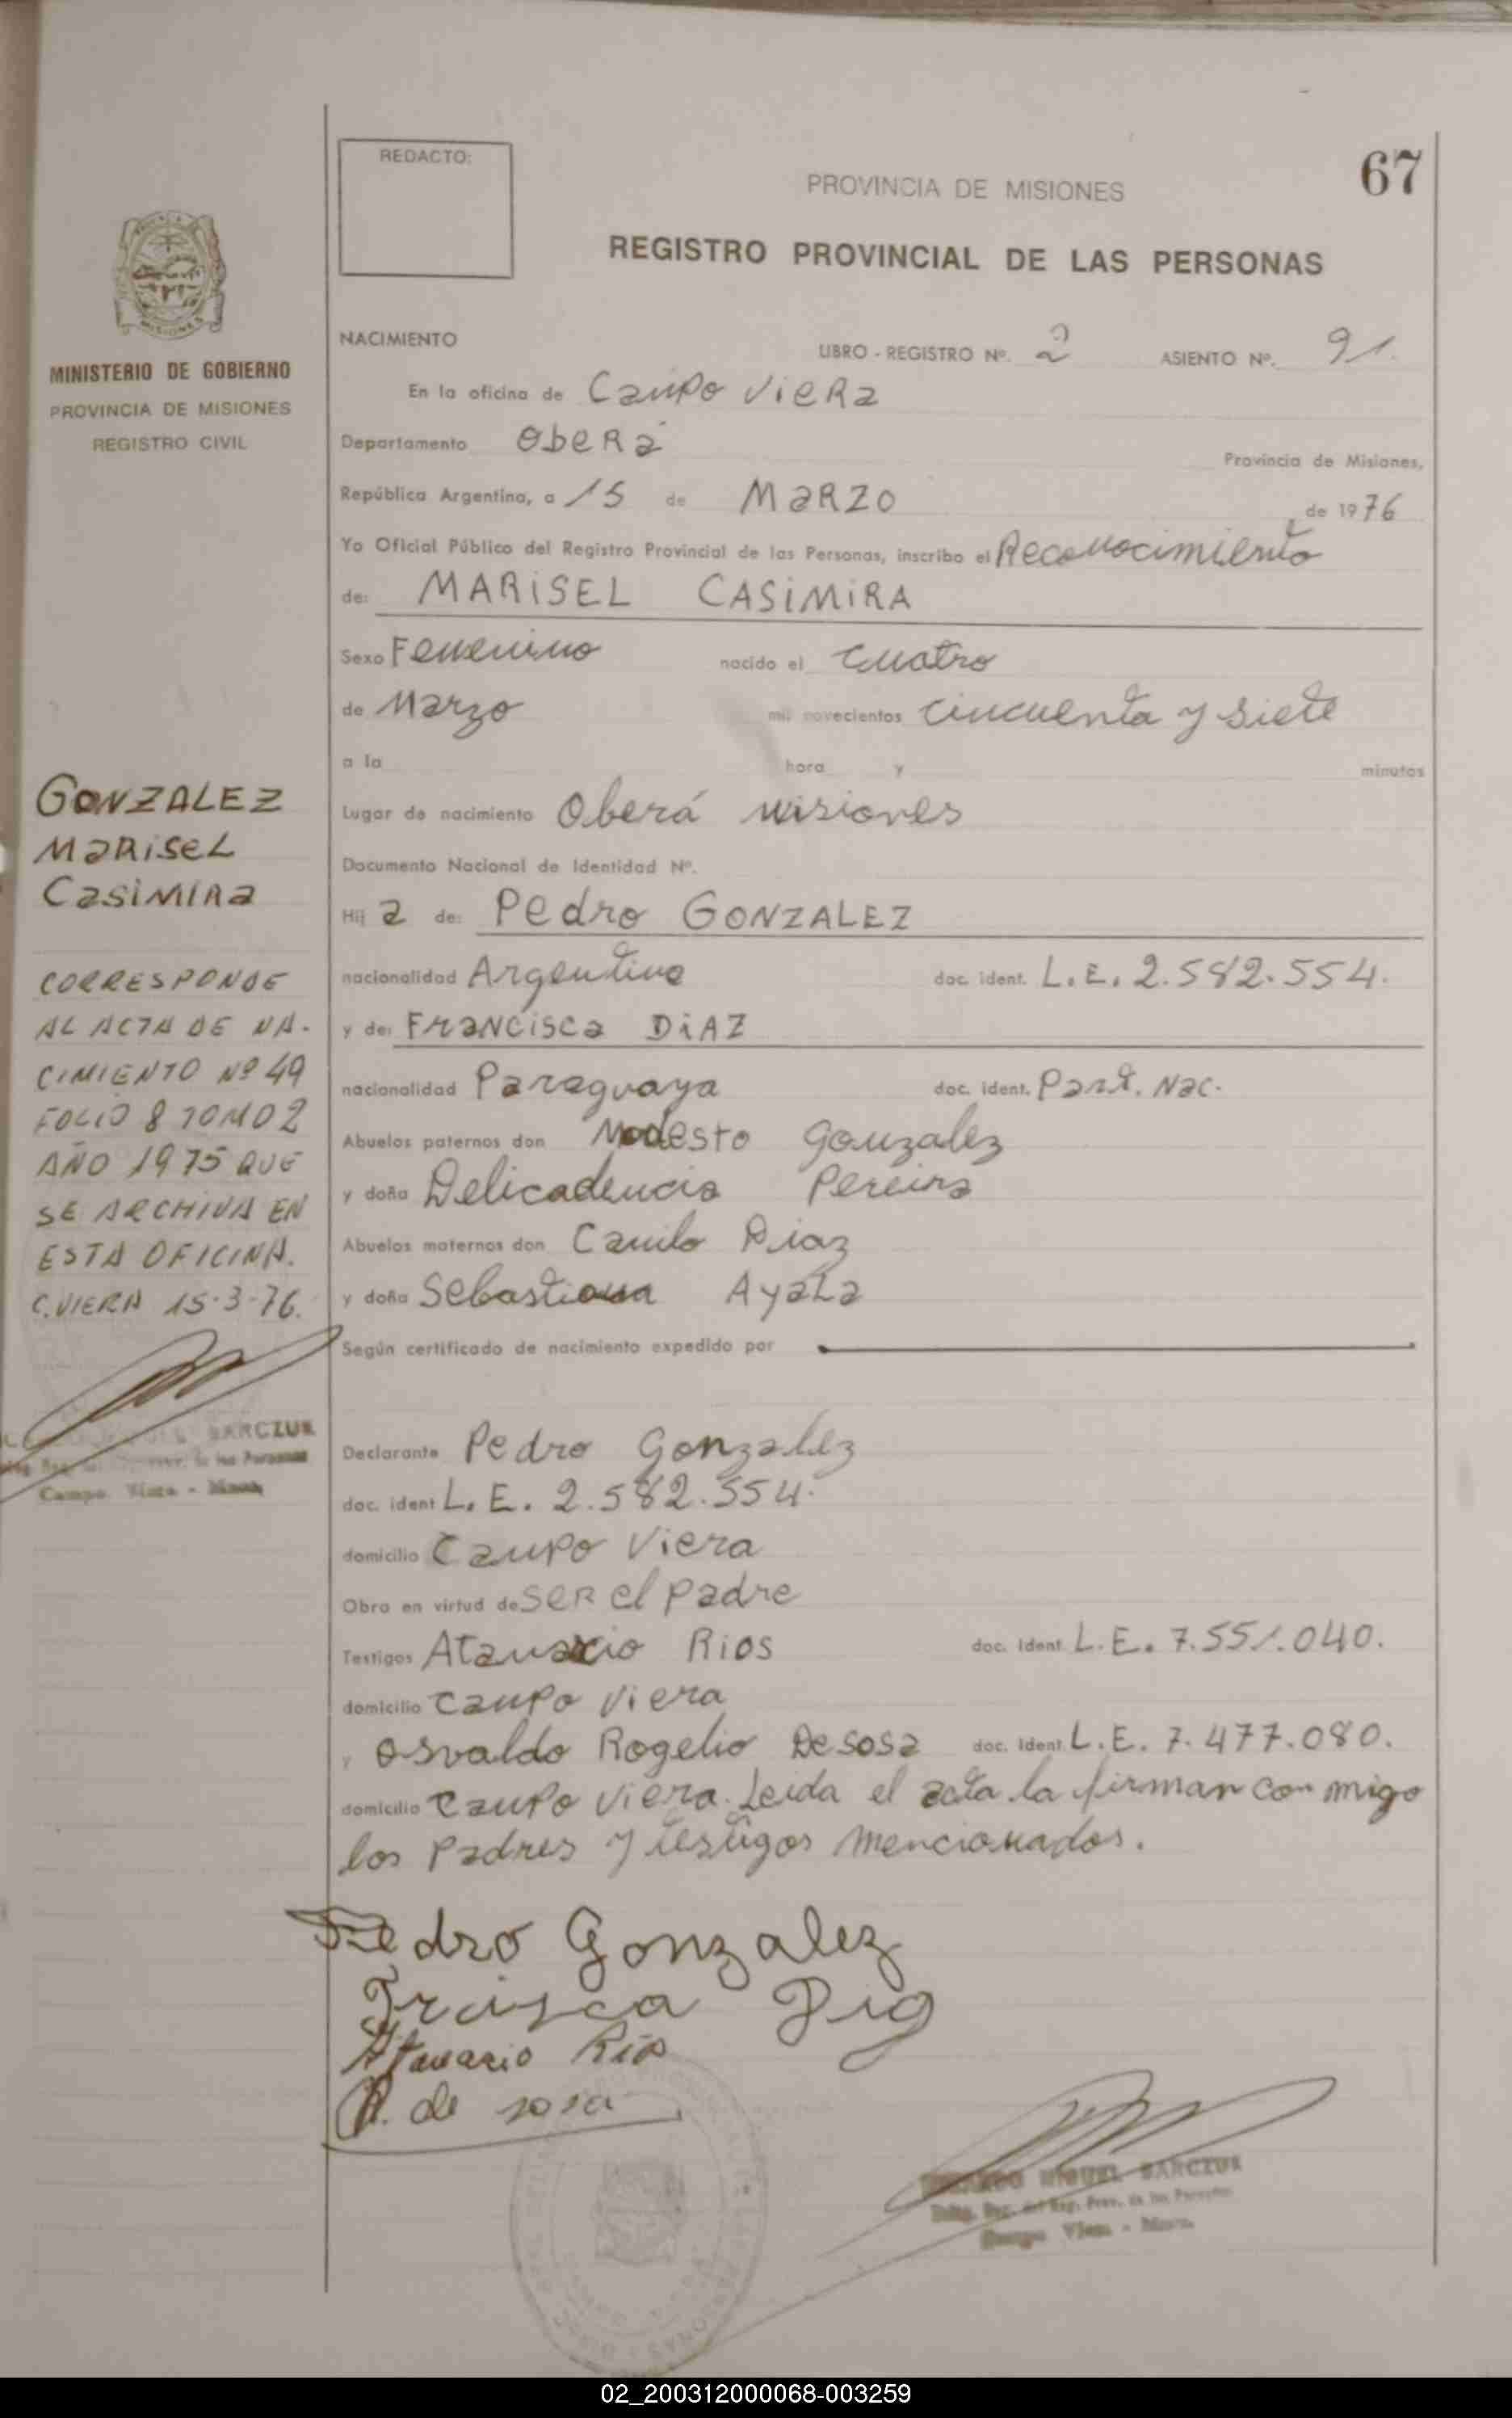 REDACTO:
67
PROVINCIA DE MISIONES
REGISTRO PROVINCIAL DE LAS PERSONAS
MISIONES
MINISTERIO DE GOBIERNO
PROVINCIA DE MISIONES
REGISTRO CIVIL
NACIMIENTO
LIBRO - REGISTRO Nº. 2 ASIENTO Nº. 91.
En la oficina de Campo Viera
Departamento Oberá Provincia de Misiones,
República Argentina, a 15 de Marzo de 1976
Yo Oficial Público del Registro Provincial de las Personas, inscribo el Reconocimiento
de: MARISEL CASIMIRA
Sexo Femenino nacido el Cuatro
de Marzo mil novecientos cincuenta y siete
a la hora y minutos
Lugar de nacimiento Oberá misiones
Documento Nacional de Identidad Nº.
Hij a de: Pedro GONZALEZ
nacionalidad Argentino doc. ident. L.E. 2.582.554.
y de: Francisca DiAZ
nacionalidad Paraguaya doc. ident. Part. Nac.
Abuelos paternos don Modesto Gonzalez
y doña Delicadencia Pereira
Abuelos maternos don Camilo Diaz
y doña Sebastiana Ayala
Según certificado de nacimiento expedido por
Declarante Pedro Gonzalez
doc. ident L.E. 2.582.554.
domicilio Campo Viera
Obra en virtud de ser el padre
Testigos Atanacio Rios doc. ident. L.E. 7.551.040.
domicilio Campo Viera
y Osvaldo Rogelio De sosa doc. ident. L.E. 7.477.080.
domicilio Campo Viera. Leida el acta la firman con migo
los Padres y testigos mencionados.
GONZALEZ
Marisel
Casimira
CORRESPONDE
AL ACTA DE NA-
CIMIENTO Nº 49
FOLIO 8 TOMO 2
AÑO 1975 QUE
SE ARCHIVA EN
ESTA OFICINA.
C. VIERA 15-3-76.
BARCZUK
Campo Viera - Mnes.
Pedro Gonzalez
Atanacio Rios
R. de sosa
MIGUEL BARCZUK
del Reg. Prov. de las Personas
Campo Viera - Mnes.
02_200312000068-003259